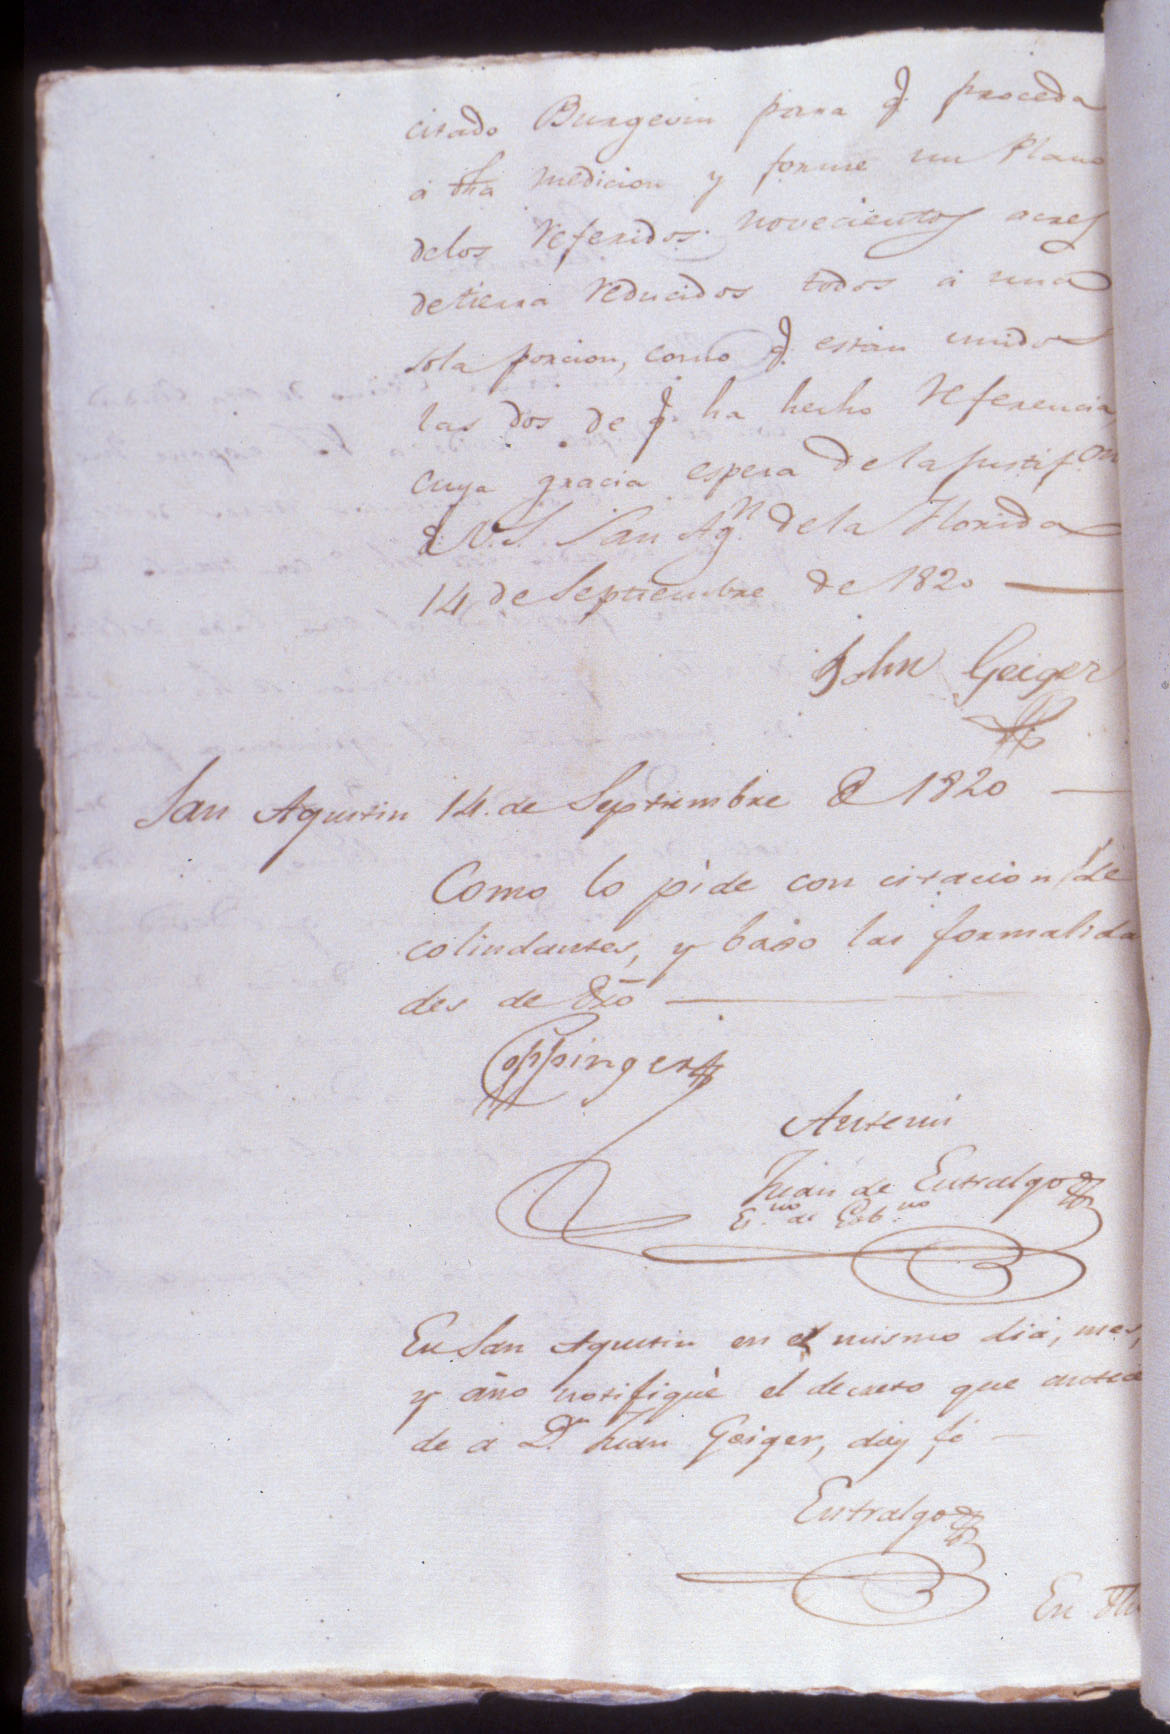 citado Burgevin para q. proceda
á dha medicion y forme un Plano
delos referidos novecientos acres
detierra reducidos todos á una
sola porcion, como q. estan unidos
las dos de q. ha hecho referencia,
cuya gracia espera dela justif.on
d V.S. San Ag.n dela Florida
14 de Septiembre de 1820
John Geiger
San Agustin 14. de Septiembre de 1820
Como lo pide con citacion de
colindantes, y baxo las formalida
des de dro
Coppinger
Antemi
Juan de Entralgo
E.no de Gob.no
En San Agustin en el mismo dia, mes,
y año notifiqué el decreto que antece
de a D.n Juan Geiger, doy fé
Entralgo
En